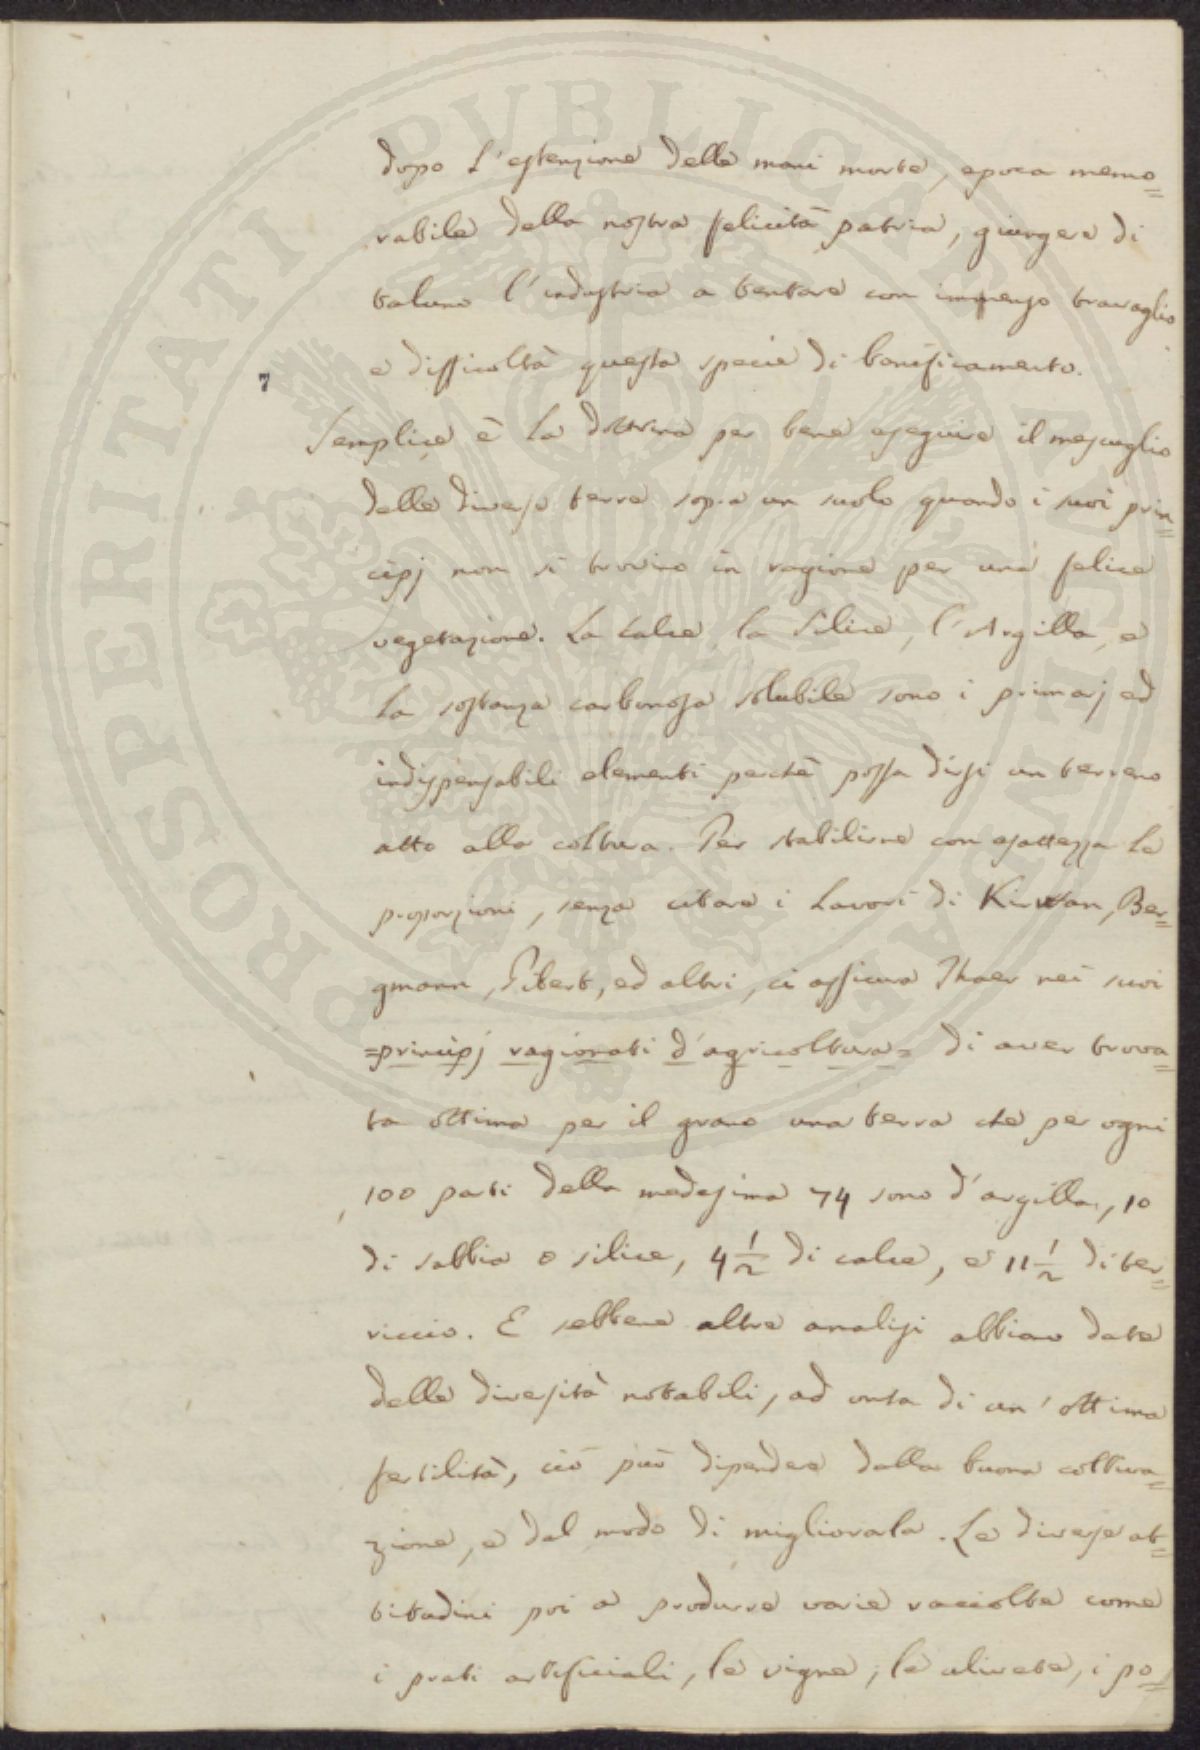 dopo l'estenzione delle mani morte, epoca memo=
rabile della nostra felicità patria, giungere di
taluno l'industria a tentare con immenso travaglio
e difficoltà questa specie di bonificamento.
7
Semplice è la dottrina per bene eseguire il mescuglio
delle diverse terre sopra un suolo quando i suoi prin=
cipj non si trovino in ragione per una felice
vegetazione. La Calce, la Silice, l'Argilla, e
la sostanza carbonosa solubile sono i primarj ed
indispensabili elementi perchè possa dirsi un terreno
atto alla coltura. Per stabilirne con esattezza le
proporzioni, senza citare i lavori di Kirwan, Ber=
gmann, Tibert, ed altri, ci assicura Thaer nei suoi
=principj ragionati d'agricoltura= di aver trova=
ta ottima per il grano una terra che per ogni
100 parti della medesima 74 sono d'argilla, 10
di sabbia o silice, 4 1/2 di calce, e 11 1/2 di ter=
riccio. E sebbene altre analisi abbiano date
delle diversità notabili, ad onta di un'ottima
fertilità, ciò può dipendere dalla buona coltiva=
zione, e dal modo di migliorarla. Le diverse at=
titudini poi a produrre varie raccolte come
i prati artificiali, le vigne, le ulivete, i po=
PROSPERITATI PUBLICAE AUGENDAE